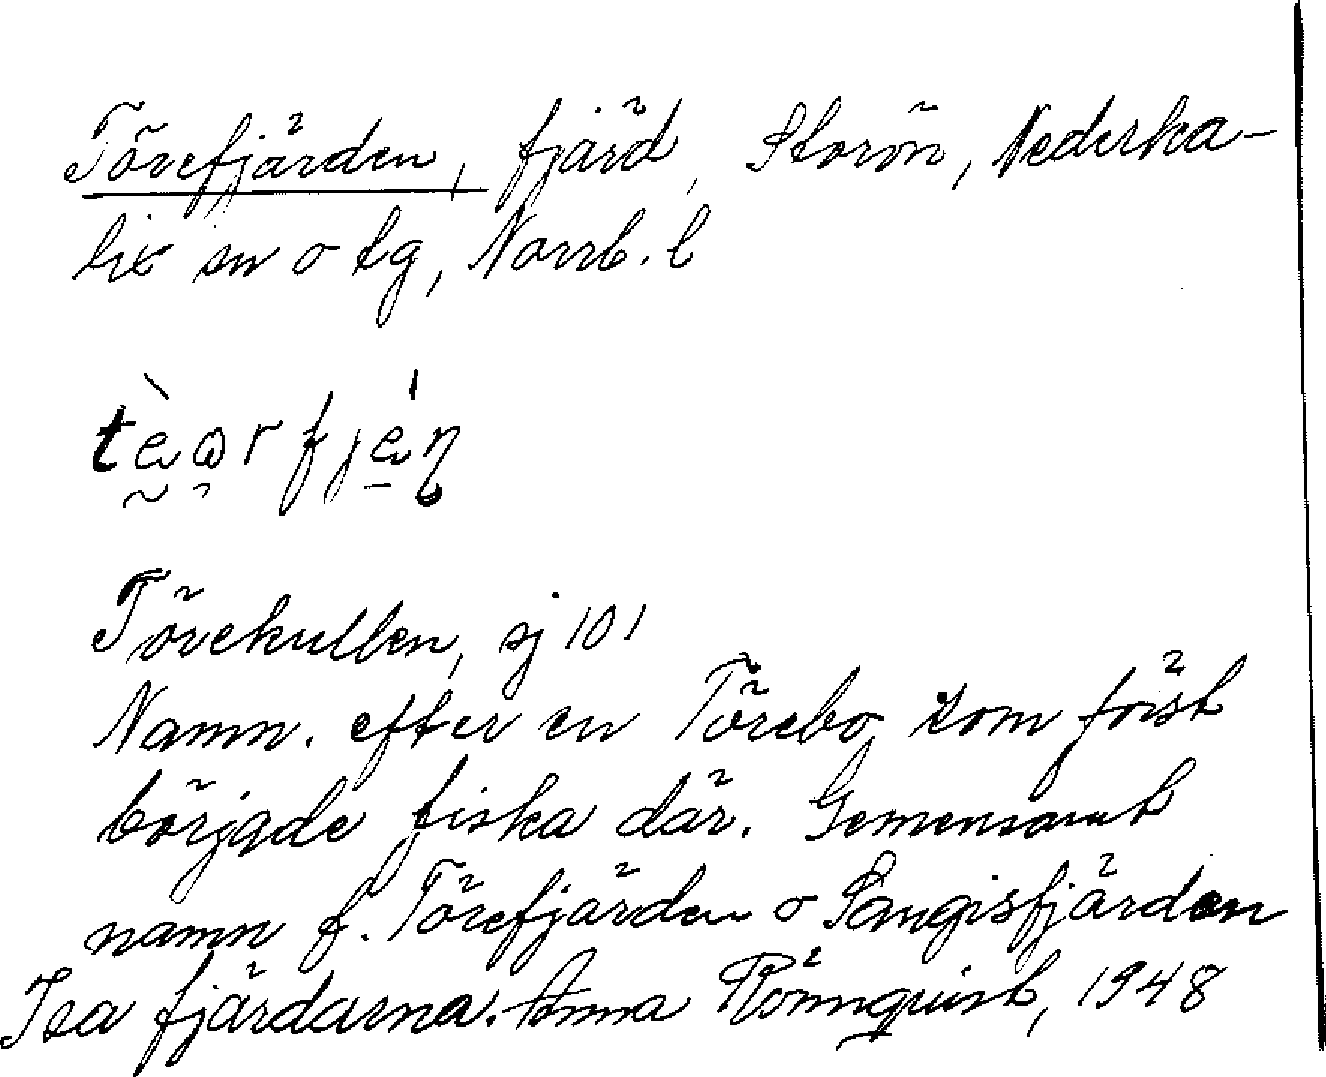 Törefjärden, fjärd, Storön, Nederka-
lix sn o tg, Norrb. l
tèa̯rfjéṇ
Törekullen, sj 101
Namn. efter en Törebo som först
började fiska där. Gemensamt
namn f. Törefjärden o Sangisfjärden
Isa fjärdarna. Anna Rönnquist, 1948